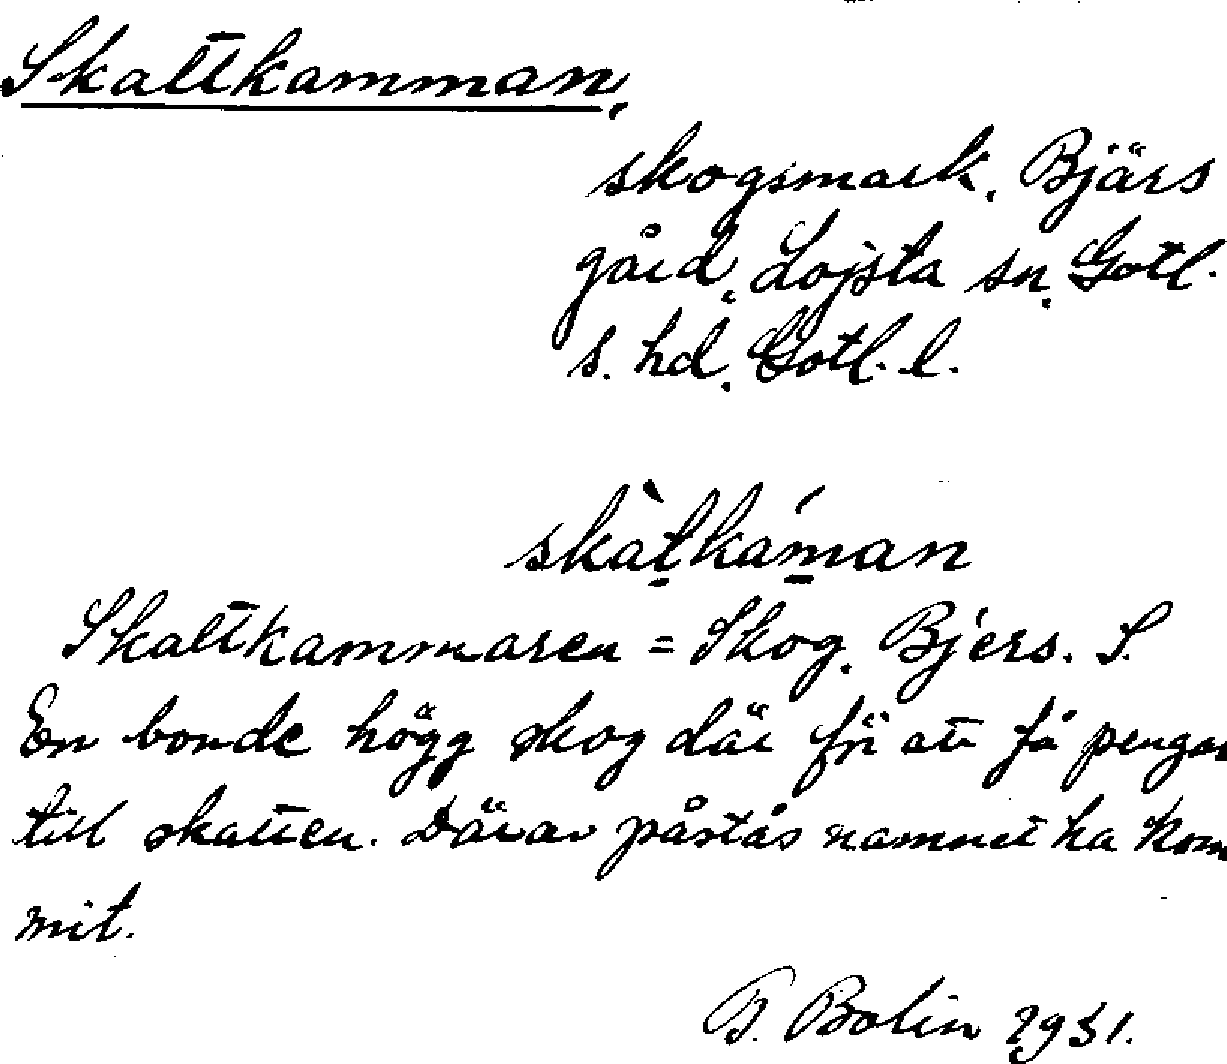 Skattkamman,
skogsmark, Bjärs
gård, Lojsta sn, Gotl.
s. hd, Gotl. l.
skàt̠kám̠an
Skattkammaren = Skog, Bjers. S.
En bonde högg skog där för att få pengar
till skatten. Därav påstås namnet ha kom
mit.
G. Bolin 1931.